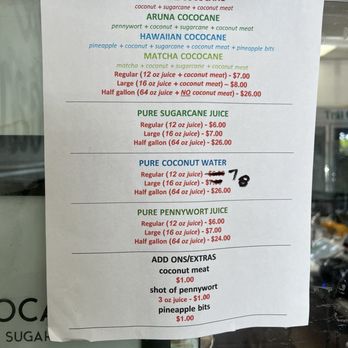 coconut + sugarcane + coconut meat
ARUNA COCOCANE
pennywort + coconut + sugarcane + coconut meat
HAWAIIAN COCOCANE
pineapple + coconut + sugarcane + coconut meat + pineapple bits
MATCHA COCOCANE
matcha + coconut + sugarcane + coconut meat
Regular (12 oz juice + coconut meat) - $7.00
Large (16 oz juice + coconut meat) – $8.00
Half gallon (64 oz juice + NO coconut meat) - $26.00
PURE SUGARCANE JUICE
Regular (12 oz juice) - $6.00
Large (16 oz juice) - $7.00
Half gallon (64 oz juice) - $26.00
PURE COCONUT WATER
Regular (12 oz juice) - $6.00 7
Large (16 oz juice) - $7.00 8
Half gallon (64 oz juice) - $26.00
PURE PENNYWORT JUICE
Regular (12 oz juice) - $6.00
Large (16 oz juice) - $7.00
Half gallon (64 oz juice) - $24.00
ADD ONS/EXTRAS
coconut meat
$1.00
shot of pennywort
3 oz juice - $1.00
pineapple bits
$1.00
OCA
SUGAR